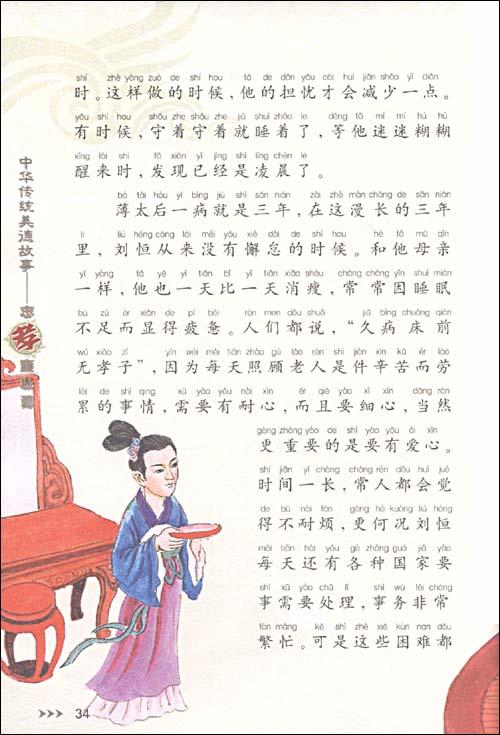 shí zhè yàng zuò de shí hou tā de dān yōu cái huì jiǎn shǎo yì diǎn
时。这样做的时候，他的担忧才会减少一点。
yǒu shí hou shǒu zhe shǒu zhe jiù shuì zháo le děng tā mí mí hú hú
有时候，守着守着就睡着了，等他迷迷糊糊
xǐng lái shí fā xiàn yǐ jīng shì líng chén le
醒来时，发现已经是凌晨了。
bó tài hòu yí bìng jiù shì sān nián zài zhè màn cháng de sān nián
薄太后一病就是三年，在这漫长的三年
lǐ liú héng cóng lái méi yǒu xiè dài de shí hou hé tā mǔ qīn
里，刘恒从来没有懈怠的时候。和他母亲
yí yàng tā yě yì tiān bǐ yì tiān xiāo shòu cháng cháng yīn shuì mián
一样，他也一天比一天消瘦，常常因睡眠
bù zú ér xiǎn de pí bèi rén men dōu shuō jiǔ bìng chuáng qián
不足而显得疲惫。人们都说，“久病床前
wú xiào zǐ yīn wèi měi tiān zhào gù lǎo rén shì jiàn xīn kǔ ér láo
无孝子”，因为每天照顾老人是件辛苦而劳
lèi de shì qing xū yào yǒu nài xīn ér qiě yào xì xīn dāng rán
累的事情，需要有耐心，而且要细心，当然
gèng zhòng yào de shì yào yǒu ài xīn
更重要的是要有爱心。
shí jiān yì cháng cháng rén dōu huì jué
时间一长，常人都会觉
de bú nài fán gèng hé kuàng liú héng
得不耐烦，更何况刘恒
měi tiān hái yǒu gè zhǒng guó jiā yào
每天还有各种国家要
shì xū yào chǔ lǐ shì wù fēi cháng
事需要处理，事务非常
fán máng kě shì zhè xiē kùn nan dōu
繁忙。可是这些困难都
中华传统美德故事——忠孝廉
34